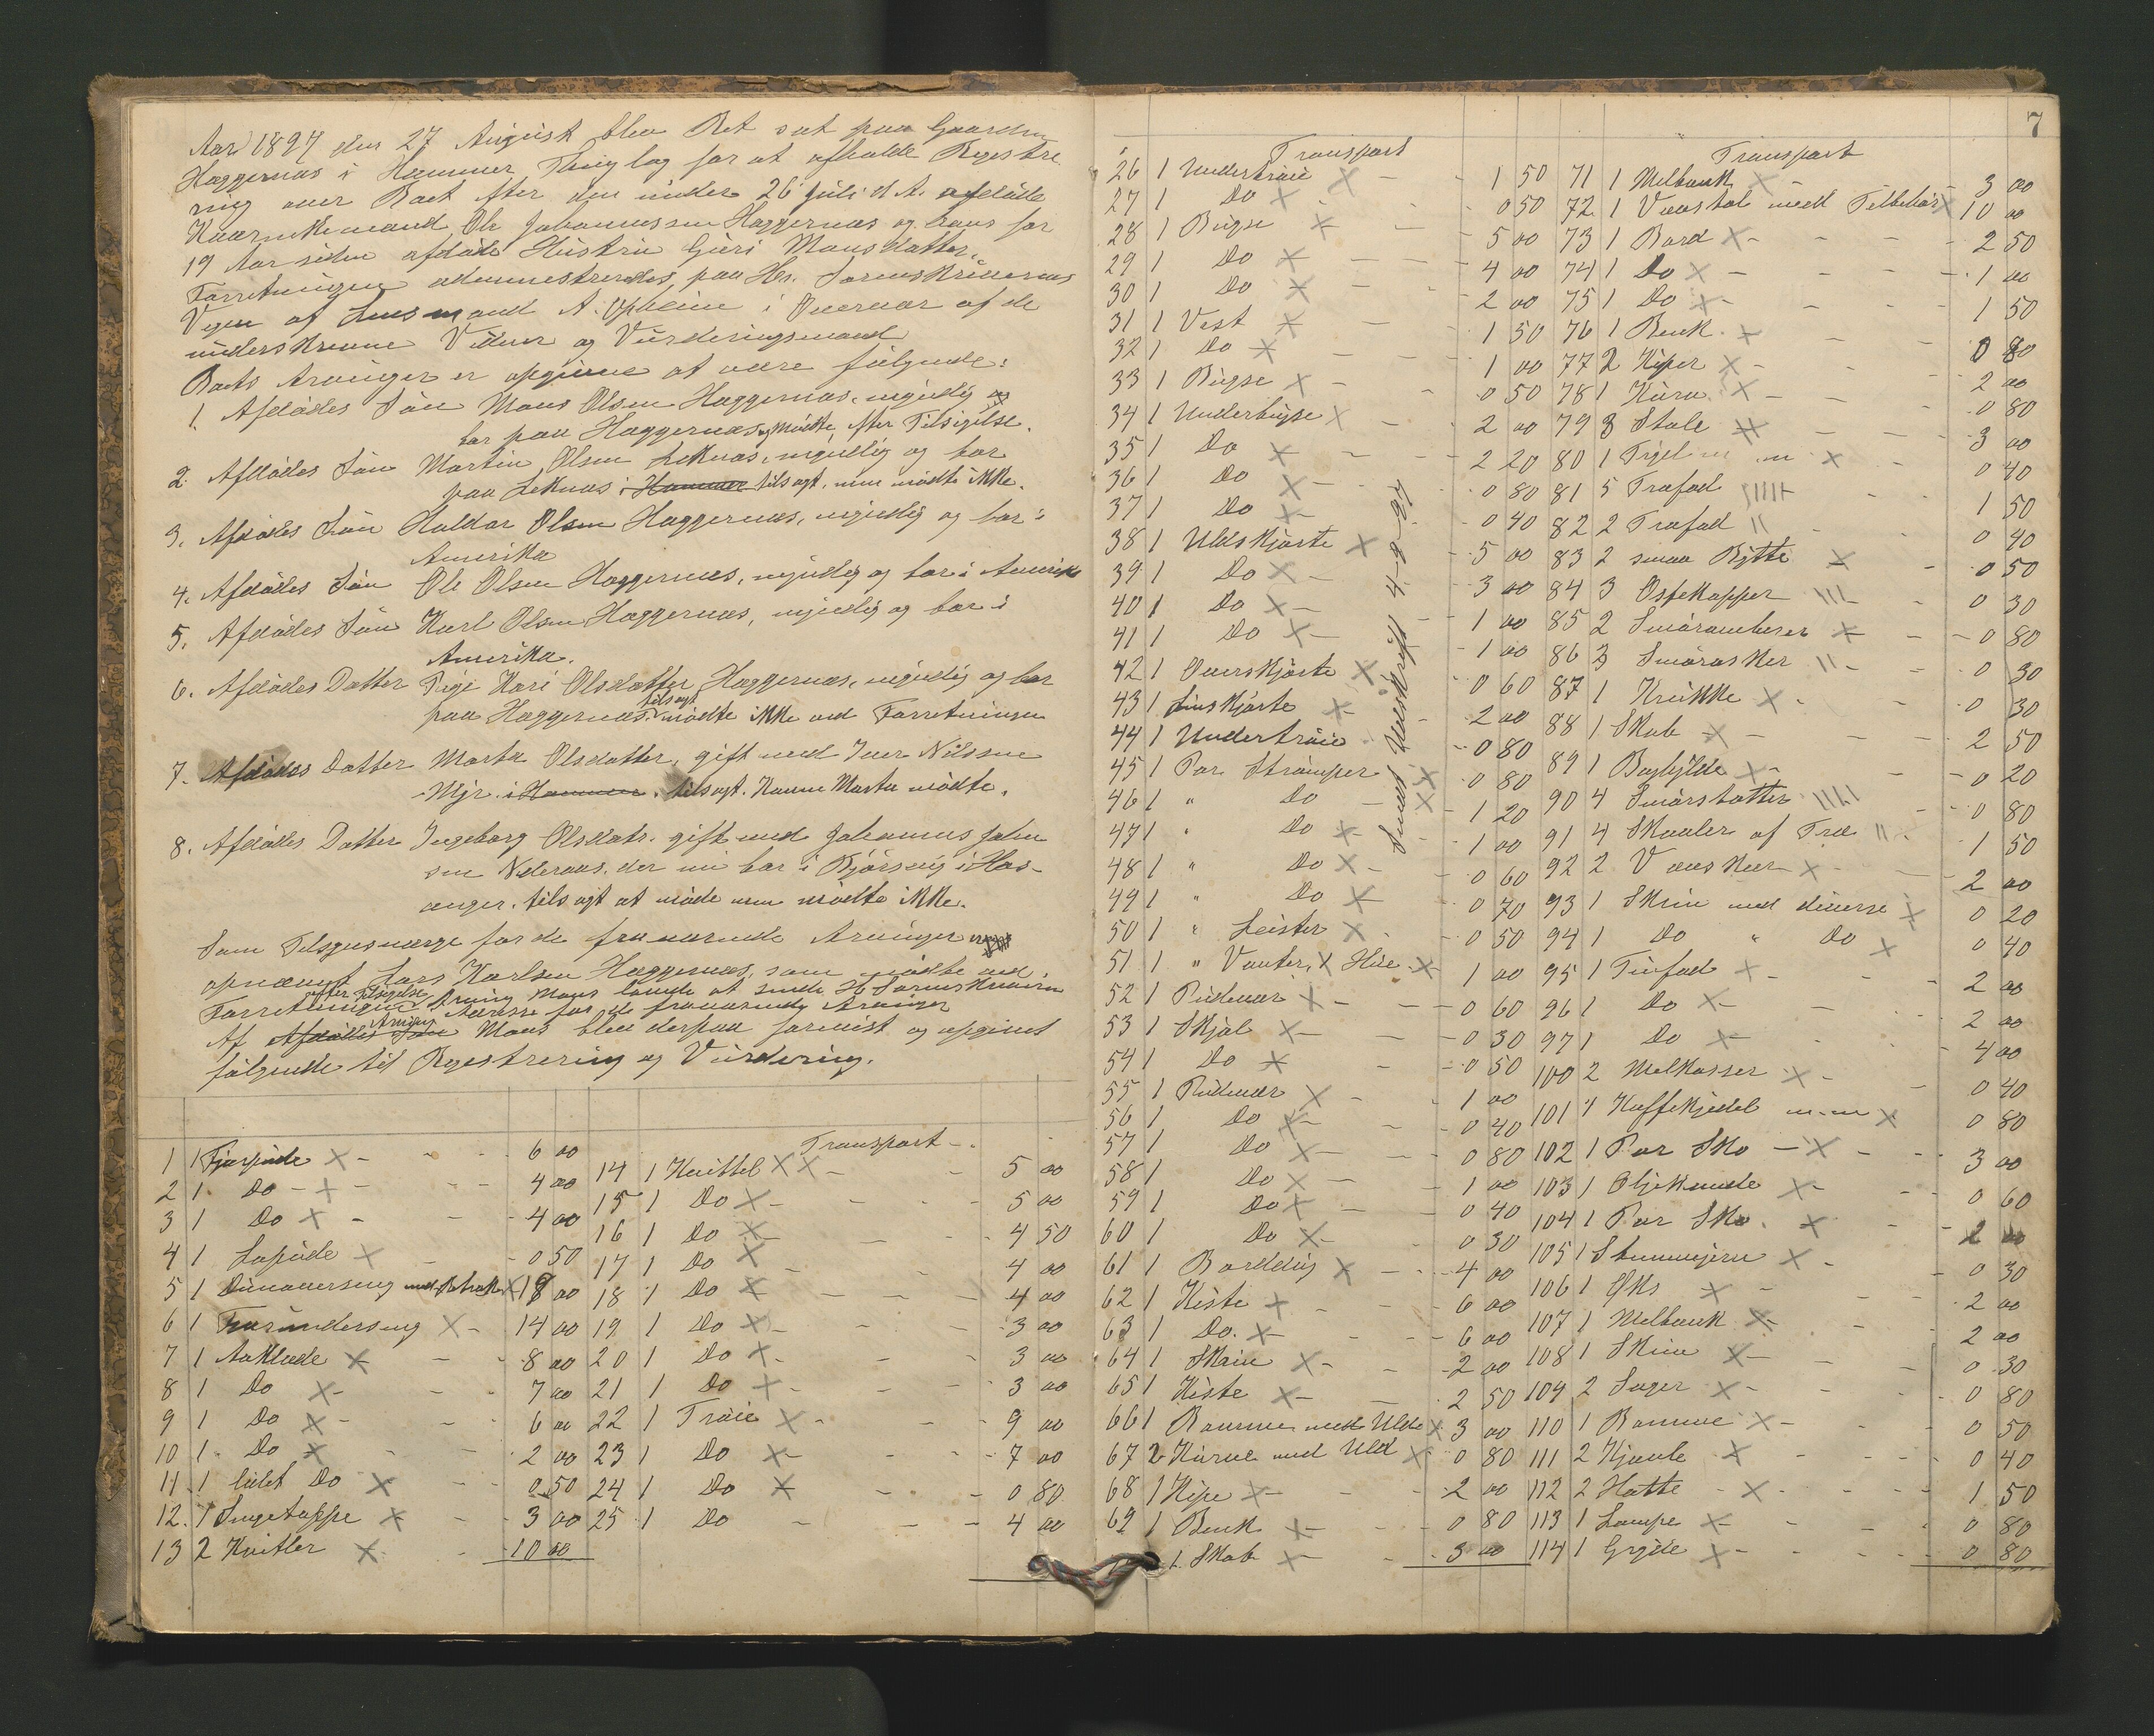 Aar 1897 den 27 August blev Ret sat paa Gaarden
Haggernæs i Hammer Thinglag for at afholde Regestre
ring over Boet efter den under 26 Juli d. A. afdøde
Kaarmand Ole Johannessen Haggernæs og hans for
19 Aar siden afdøde Hustru Guri Monsdatter.
Forretningen administreredes paa Hr. Sorenskriverens
Vegne af Lensmand A. Opheim i Overvær af de
underskrevne Vidner og Vurderingsmænd
Boets Arvinger er opgivne at være følgende:
1. Afdødes Søn Mons Olsen Haggernæs, myndig og
bor paa Haggernæs og mødte efter Tilsigelse.
2. Afdødes Søn Martin Olsen Leknæs, myndig og bor
paa Leknæs i Hammer tilsagt, men mødte ikke.
3. Afdødes Søn Haldor Olsen Haggernæs, myndig og bor i
Amerika
4. Afdødes Søn Ole Olsen Haggernæs, myndig og bor i Amerika
5. Afdødes Søn Karl Olsen Haggernæs, myndig og bor i
Amerika.
6. Afdødes Datter Kari Olsdatter Haggernæs, myndig og bor
paa Haggernæs tilsagt mødte ikke ved Forretningen
7. Afdødes Datter Marta Olsdatter, gift med Iver Nilssen
Mjr i Hammer, tilsagt. Konen Marta mødte.
8. Afdødes Datter Ingeborg Olsdatr. gift med Johannes Johan
sen Nederaas, der nu bor i Bjørsvig i Hos-
anger, tilsagt at møde men mødte ikke.
Som Tilsynsværge for de fraværende Arvinger var
opnævnt Lars Karlsen Haggernæs, som mødte ved
Forretningen efter Tilsigelse Arving Mons lovede at sende Hr Sorenskriveren
Adresse for de fraværende Arvinger
Af Afdødes Søn Arving Mons blev derpaa forevist og opgivet
følgende til Regestrering og Vurdering.
1 1 Fjærpude 6 00
2 1 Do 4 00
3 1 Do 4 00
4 1 Do 0 50
5 1 Dunoverseng 18 00
6 1 Faarunderseng 14 00
7 1 Aaklæde 8 00
8 1 Do 7 00
9 1 Do 6 00
10 1 Do 2 00
11 1 lidet Do 0 50
12 1 Sengetæppe 3 00
13 2 Kvitler 10 00
Transport
14 1 Kvittel 5 00
15 1 Do 5 00
16 1 Do 4 50
17 1 Do 4 00
18 1 Do 4 00
19 1 Do 3 00
20 1 Do 3 00
21 1 Do 3 00
22 1 Trøie 9 00
23 1 Do 7 00
24 1 Do 0 80
25 1 Do 4 00
7
Transport
26 1 Undertrøie 1 50
27 1 Do 0 50
28 1 Bugse 5 00
29 1 Do 4 00
30 1 Do 2 00
31 1 Vest 1 50
32 1 Do 1 00
33 1 Bugse 0 50
34 1 Underbugse 2 00
35 1 Do 2 20
36 1 Do 0 80
37 1 Do 0 40
38 1 Uldskjorte 5 00
39 1 Do 3 00
40 1 Do 1 00
41 1 Do 1 00
42 1 Overskjorte 0 60
43 1 Linskjorte 2 00
44 1 Undertrøie 0 80
45 1 Par Strømper 0 80
46 1 " Do 1 20
47 1 " Do 1 00
48 1 " Do 0 60
49 1 " Do 0 70
50 1 " Leister 0 50
51 1 " Vanter, 1 Hue 1 00
52 1 Pudevar 0 60
53 1 Skjol 0 30
54 1 Do 0 50
55 1 Pudevar 1 00
56 1 Do 0 40
57 1 Do 0 80
58 1 Do 1 00
59 1 Do 0 40
60 1 Do 0 30
61 1 Borddug 4 00
62 1 Kiste 6 00
63 1 Do. 6 00
64 1 Skrin 2 00
65 1 Kiste 2 50
66 1 Bomme med Uld 3 00
67 2 Kurve med Uld 0 80
68 1 Kipe 2 00
69 1 Benk 0 80
1 Skab 3 00
Sendt Udskrift 4-9-97
Transport
71 1 Melbenk 3 00
72 1 Vævstol med Tilbehør 10 00
73 1 Bord 2 50
74 1 Do 1 00
75 1 Do 1 50
76 1 Benk 0 80
77 2 Kiper 2 00
78 1 Kurv 0 80
79 8 Stole 3 00
80 1 0 40
81 5 Træfad 1 50
82 2 Træfad 0 40
83 2 smaa Bytte 0 50
84 3 Ostekopper 0 30
85 2 Smørambarer 0 80
86 3 Smørasker 0 30
87 1 Krukke 0 30
88 1 Skab 2 50
89 1 Boghylde 0 20
90 4 Smørstatter 0 80
91 4 Skaaler af Træ 1 50
92 2 2 00
93 1 Skrin med diverse 0 20
94 1 Do " Do 0 40
95 1 Tinfad 2 00
96 1 Do 2 00
97 1 Do 4 00
100 2 Melkasser 0 40
101 1 Kaffekjedel m. m 0 80
102 1 Par Sko 3 00
103 1 Oljekande 0 60
104 1 Par Sko 2 00
105 1 Stemmejern 0 30
106 1 Øks 2 00
107 1 Melbenk 2 00
108 1 Skrin 0 30
109 2 Sager 0 80
110 1 Bomme 0 50
111 2 Kjævle 0 40
112 2 Hatte 1 50
113 1 Lampe 0 80
114 1 Gryde 0 80